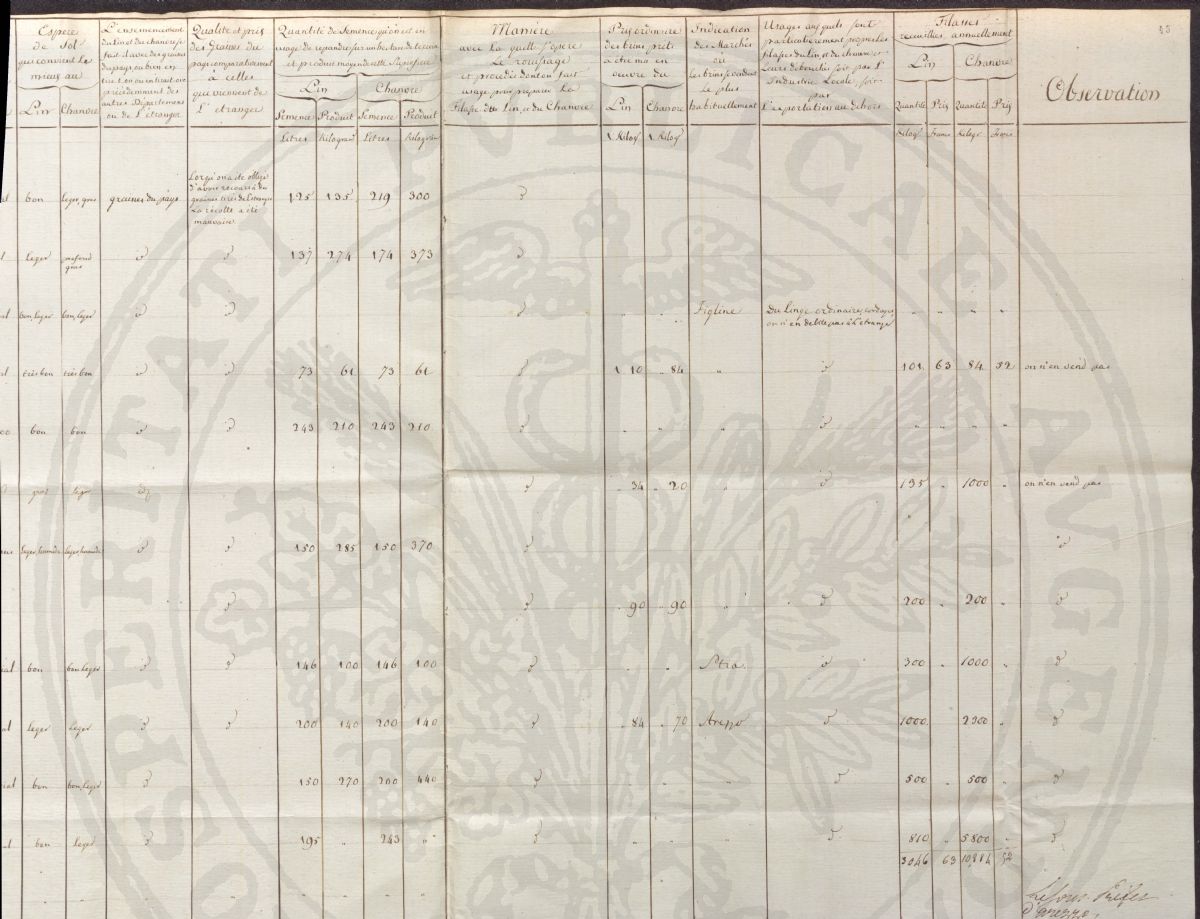 45
Espèce de Sol qui convient le mieux au
Lin Chanvre
L'ensemencement du Lin et du chanvre se fait-il avec des graines du pays, ou bien en
précédemment des autres Départemens ou de L'étranger
Qualité et prix des Graines du pays comparativement à celles qui viennent de L'étranger
Quantité de Semence qu'on est en usage de répandre sur un hectare de terrein et produit moyen de cette Superficie
Lin Chanvre
Semence Produit Semence Produit
Litres Kilogram Litres Kilogram
Manière avec la quelle s'opère Le rouissage et procédés dont on fait usage pour préparer La Filasse du Lin, et du Chanvre
Prix ordinaire des brins prêts à être mis en œuvre du
Lin Chanvre
1 Kilog 1 Kilog
Indication des Marchés où les brins se vendent le plus habituellement
Usages auxquels sont particulièrement propres les filasses du Lin et du chanvre et Leurs débouchés soit par L'Industrie Locale, soit par L'exportation au dehors
Filasses recueillies annuellement
Lin Chanvre
Quantité Prix Quantité Prix
Kilog Francs Kilogr Francs
Observation
bon leger, gras graines du pays Lorsqu'on a été obligé d'avoir recours à des graines tirés de L'étranger La récolte a été mauvaise 125 135 219 300 d°
leger profond gras d° d° 137 274 174 373 d°
bon, leger bon, leger d° d° d° " " Figline Du Linge ordinaire, cordages on n'en debite pas à L'etranger " " " "
très bon très bon d° d° 73 61 73 61 d° 1 10 " 84 " d° 101 63 84 52 on n'en vend pas
bon bon d° d° 243 210 243 210 d° " " " d° " " " "
d° d° " 34 " 20 " d° 135 " 1000 " on n'en vend pas
leger, humide leger, humide d° d° 150 285 150 370 d°
d° d° " 90 " 90 " d° 200 " 200 " d°
bon bon leger d° d° 146 100 146 100 d° " " Stia d° 300 " 1000 " d°
leger leger d° d° 200 140 200 140 d° " 84 " 70 Arezzo d° 1000 " 2300 " d°
bon bon, leger d° 150 270 200 440 d° d° 500 " 500 " d°
bon leger d° 195 " 243 " d° d° 810 " 5800 " d°
3046 63 52
Le Sous Préfet
d'Arezzo